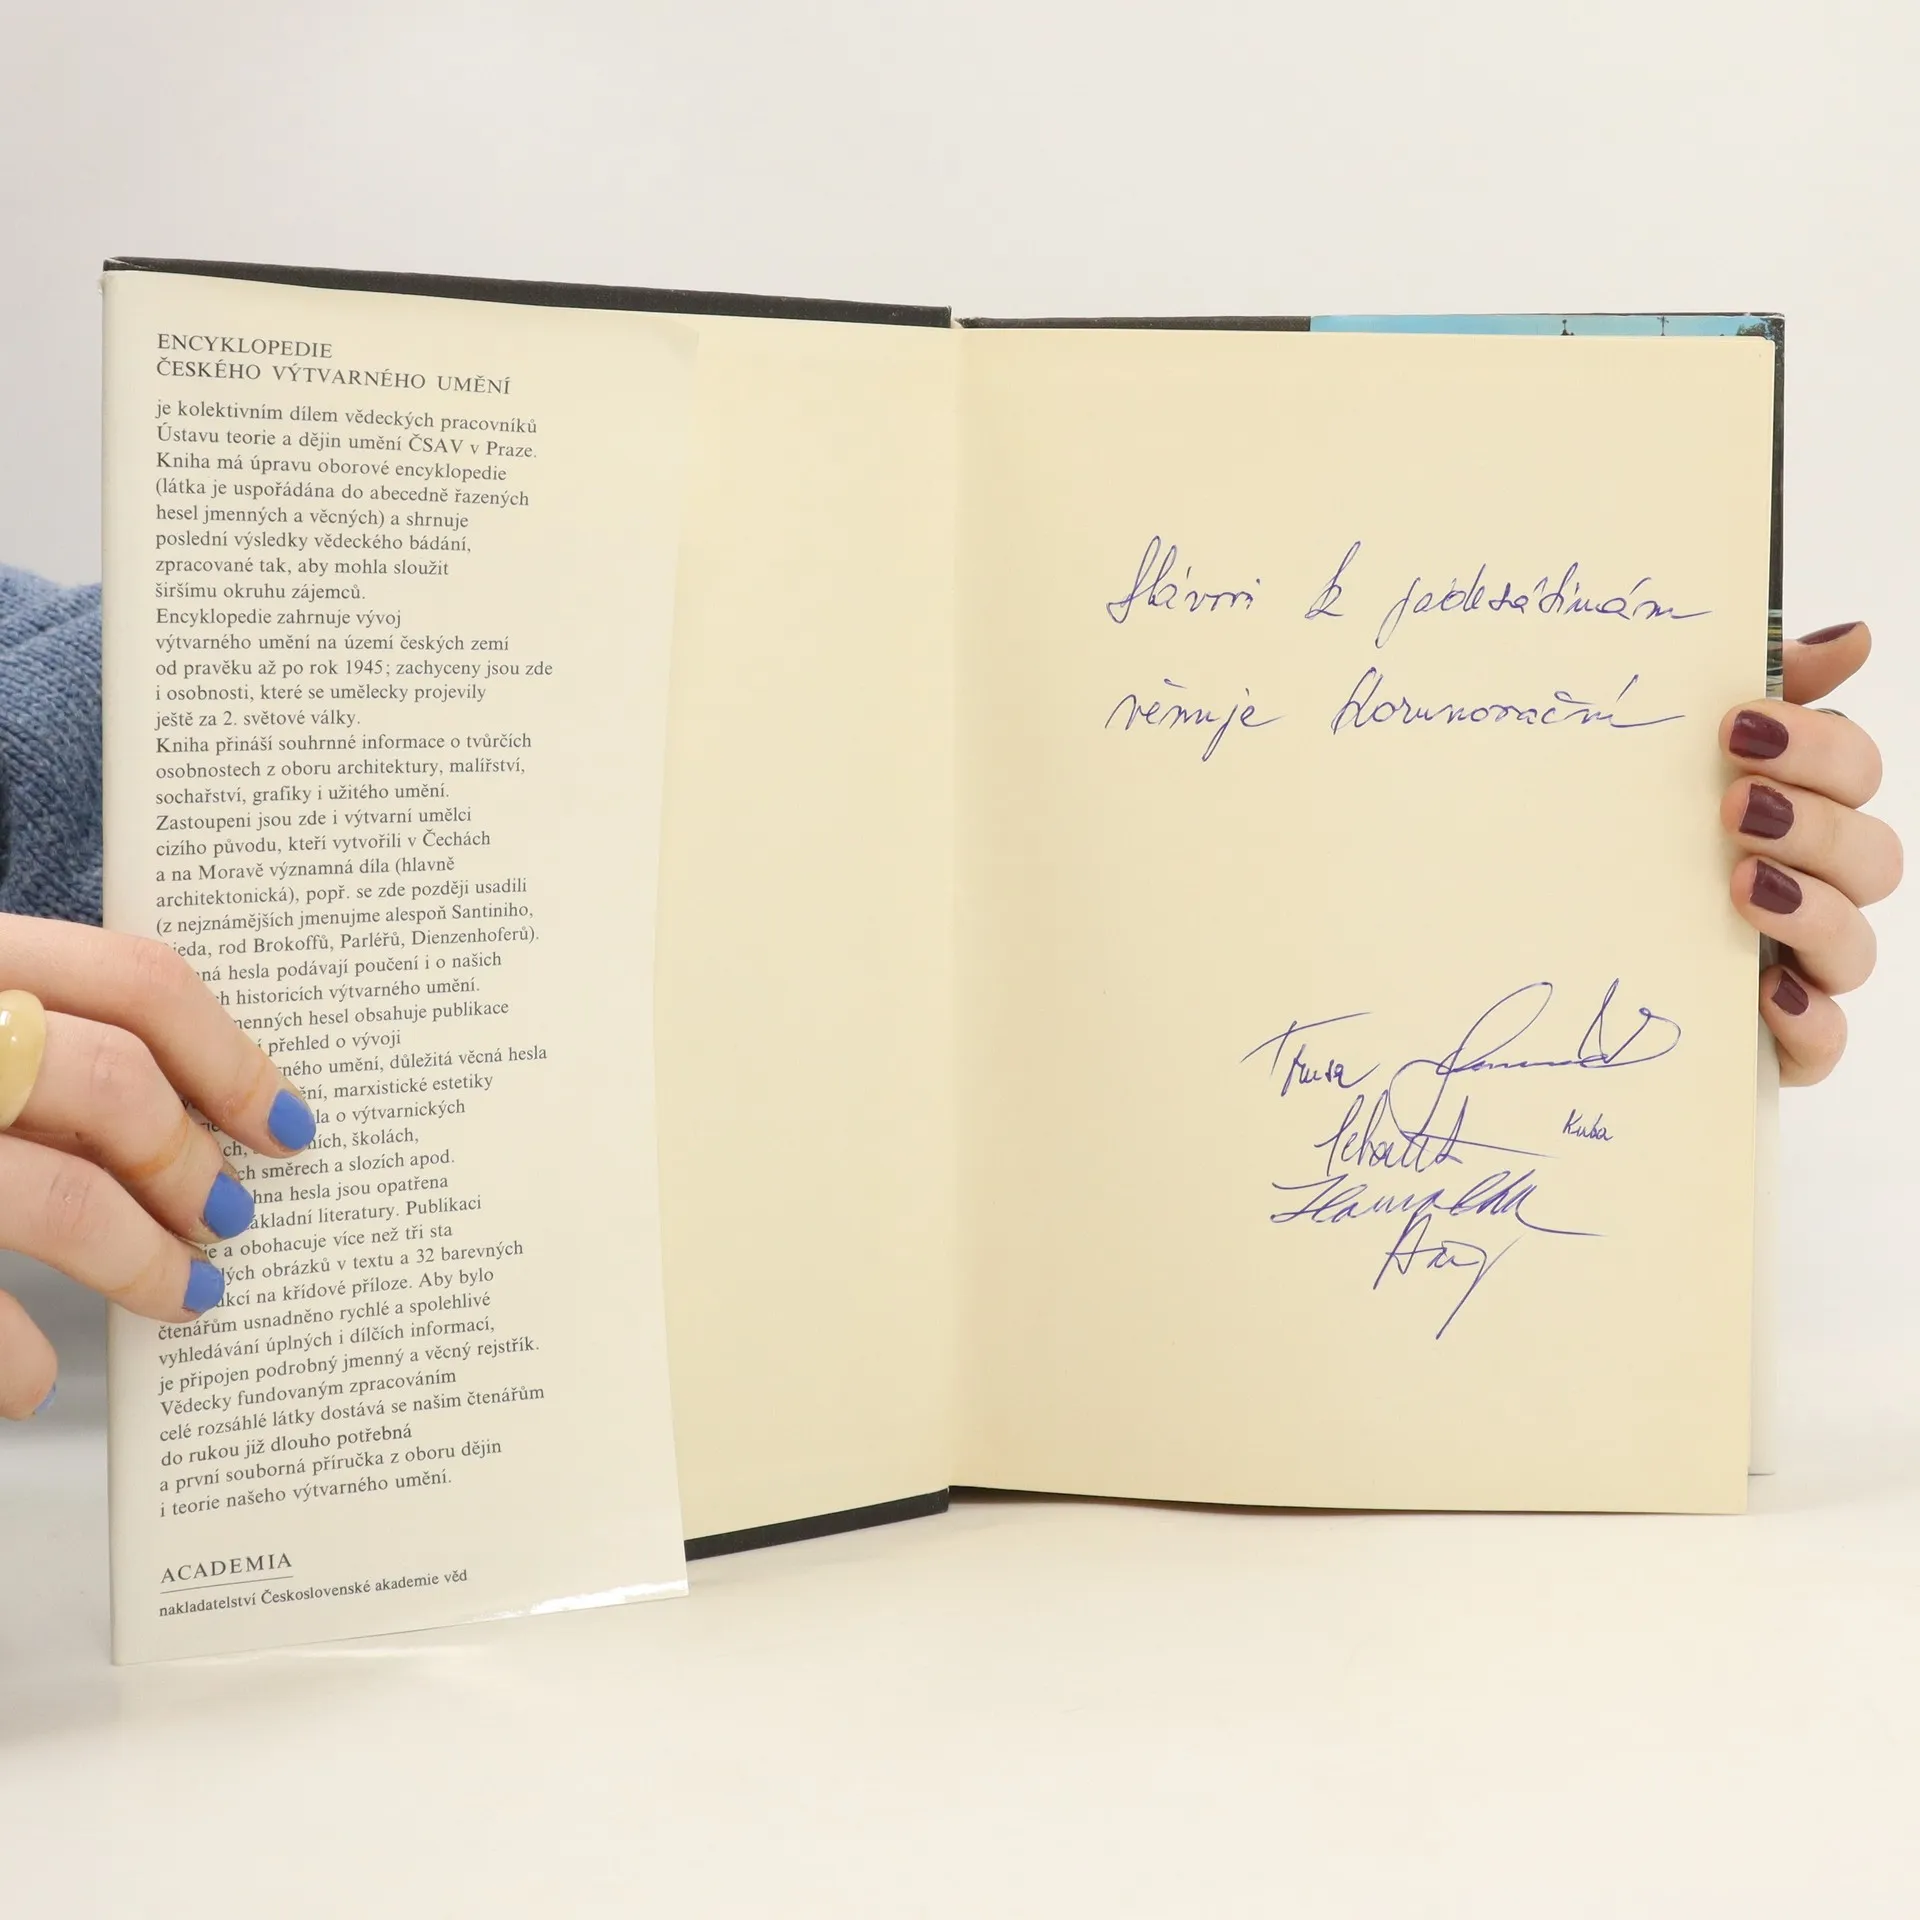 ENCYKLOPEDIE
ČESKÉHO VÝTVARNÉHO UMĚNÍ
je kolektivním dílem vědeckých pracovníků
Ústavu teorie a dějin umění ČSAV v Praze.
Kniha má úpravu oborové encyklopedie
(látka je uspořádána do abecedně řazených
hesel jmenných a věcných) a shrnuje
poslední výsledky vědeckého bádání,
zpracované tak, aby mohla sloužit
širšímu okruhu zájemců.
Encyklopedie zahrnuje vývoj
výtvarného umění na území českých zemí
od pravěku až po rok 1945; zachyceny jsou zde
i osobnosti, které se umělecky projevily
ještě za 2. světové války.
Kniha přináší souhrnné informace o tvůrčích
osobnostech z oboru architektury, malířství,
sochařství, grafiky i užitého umění.
Zastoupeni jsou zde i výtvarní umělci
cizího původu, kteří vytvořili v Čechách
a na Moravě významná díla (hlavně
architektonická), popř. se zde později usadili
(z nejznámějších jmenujme alespoň Santiniho,
rod Brokoffů, Parléřů, Dienzenhoferů).
hesla podávají poučení i o našich
historicích výtvarného umění.
hesel obsahuje publikace
přehled o vývoji
umění, důležitá věcná hesla
marxistické estetiky
o výtvarnických
školách,
směrech a slozích apod.
hesla jsou opatřena
základní literatury. Publikaci
a obohacuje více než tři sta
obrázků v textu a 32 barevných
na křídové příloze. Aby bylo
čtenářům usnadněno rychlé a spolehlivé
vyhledávání úplných i dílčích informací,
je připojen podrobný jmenný a věcný rejstřík.
Vědecky fundovaným zpracováním
celé rozsáhlé látky dostává se našim čtenářům
do rukou již dlouho potřebná
a první souborná příručka z oboru dějin
i teorie našeho výtvarného umění.
ACADEMIA
nakladatelství Československé akademie věd
Slávovi k padesátinám
věnuje Korunovační
Kuba